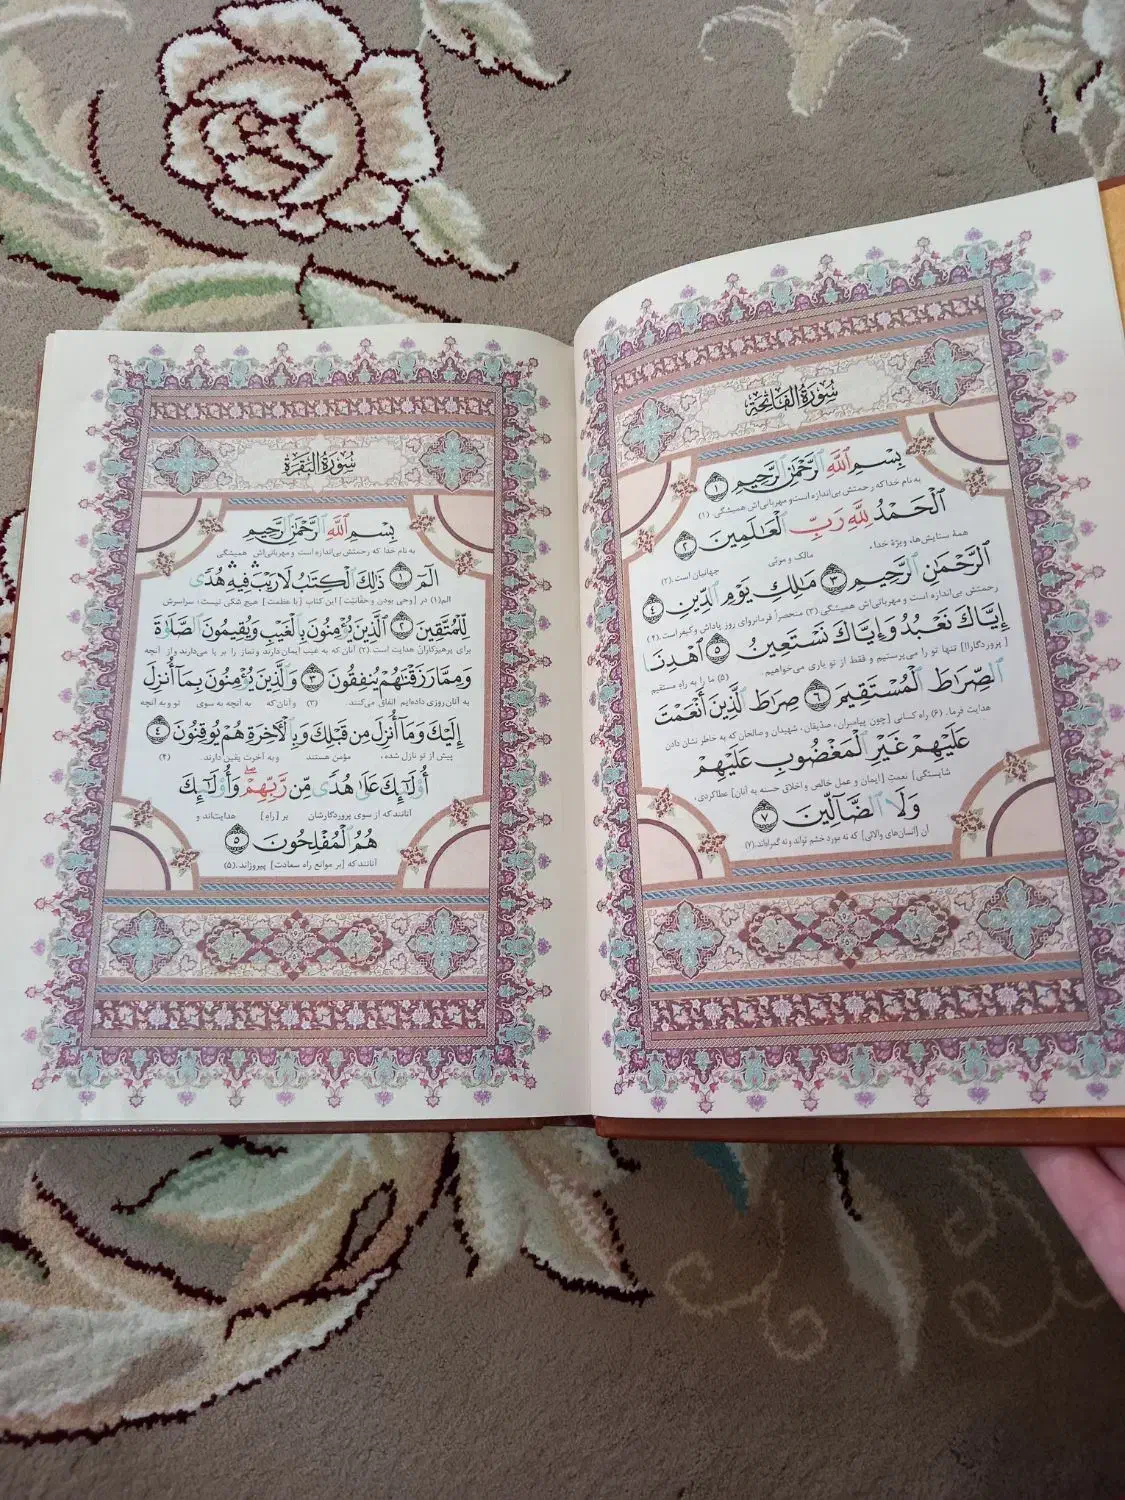 سُورَةُ الفَاتِحَة
بِسْمِ اللَّهِ الرَّحْمَٰنِ الرَّحِيمِ ١
به نام خدا که رحمتش بی‌اندازه است و مهربانی‌اش همیشگی. (۱)
الْحَمْدُ لِلَّهِ رَبِّ الْعَالَمِينَ ٢
همهٔ ستایش‌ها، ویژهٔ خدا، مالک و مربّی جهانیان است. (۲)
الرَّحْمَٰنِ الرَّحِيمِ ٣ مَالِكِ يَوْمِ الدِّينِ ٤
رحمتش بی‌اندازه است و مهربانی‌اش همیشگی (۳) منحصراً فرمانروای روز پاداش و کیفر است. (۴)
إِيَّاكَ نَعْبُدُ وَإِيَّاكَ نَسْتَعِينُ ٥ اهْدِنَا
[پروردگارا!] تنها تو را می‌پرستیم و فقط از تو یاری می‌خواهیم. (۵) ما را به راهِ مستقیم
الصِّرَاطَ الْمُسْتَقِيمَ ٦ صِرَاطَ الَّذِينَ أَنْعَمْتَ
هدایت فرما. (۶) راه کسانی [چون پیامبران، صدّیقان، شهیدان و صالحان که به خاطر نشان دادن
عَلَيْهِمْ غَيْرِ الْمَغْضُوبِ عَلَيْهِمْ
شایستگی] نعمتِ [ایمان و عمل خالص و اخلاق حسنه به آنان] عطا کردی،
وَلَا الضَّالِّينَ ٧
آن [انسان‌های والائی] که نه مورد خشم تواند و نه گمراه‌اند. (۷)
سُورَةُ البَقَرَة
بِسْمِ اللَّهِ الرَّحْمَٰنِ الرَّحِيمِ
به نام خدا که رحمتش بی‌اندازه است و مهربانی‌اش همیشگی
الٓمٓ ١ ذَٰلِكَ الْكِتَابُ لَا رَيْبَ ۛ فِيهِ ۛ هُدًى
الم (۱) در [وحی بودن و حقّانیّت] این کتاب [با عظمت] هیچ شکّی نیست؛ سراسرش
لِّلْمُتَّقِينَ ٢ الَّذِينَ يُؤْمِنُونَ بِالْغَيْبِ وَيُقِيمُونَ الصَّلَاةَ
برای پرهیزکاران هدایت است. (۲) آنان که به غیب ایمان دارند و نماز را بر پا می‌دارند و از آنچه
وَمِمَّا رَزَقْنَاهُمْ يُنفِقُونَ ٣ وَالَّذِينَ يُؤْمِنُونَ بِمَا أُنزِلَ
به آنان روزی داده‌ایم انفاق می‌کنند. (۳) و آنان که به آنچه به سوی تو و به آنچه
إِلَيْكَ وَمَا أُنزِلَ مِن قَبْلِكَ وَبِالْآخِرَةِ هُمْ يُوقِنُونَ ٤
پیش از تو نازل شده، مؤمن هستند و به آخرت یقین دارند (۴)
أُولَٰئِكَ عَلَىٰ هُدًى مِّن رَّبِّهِمْ ۖ وَأُولَٰئِكَ
آنانند که از سوی پروردگارشان بر [راهِ] هدایت‌اند و
هُمُ الْمُفْلِحُونَ ٥
آنانند که [بر موانع راه سعادت] پیروزاند. (۵)